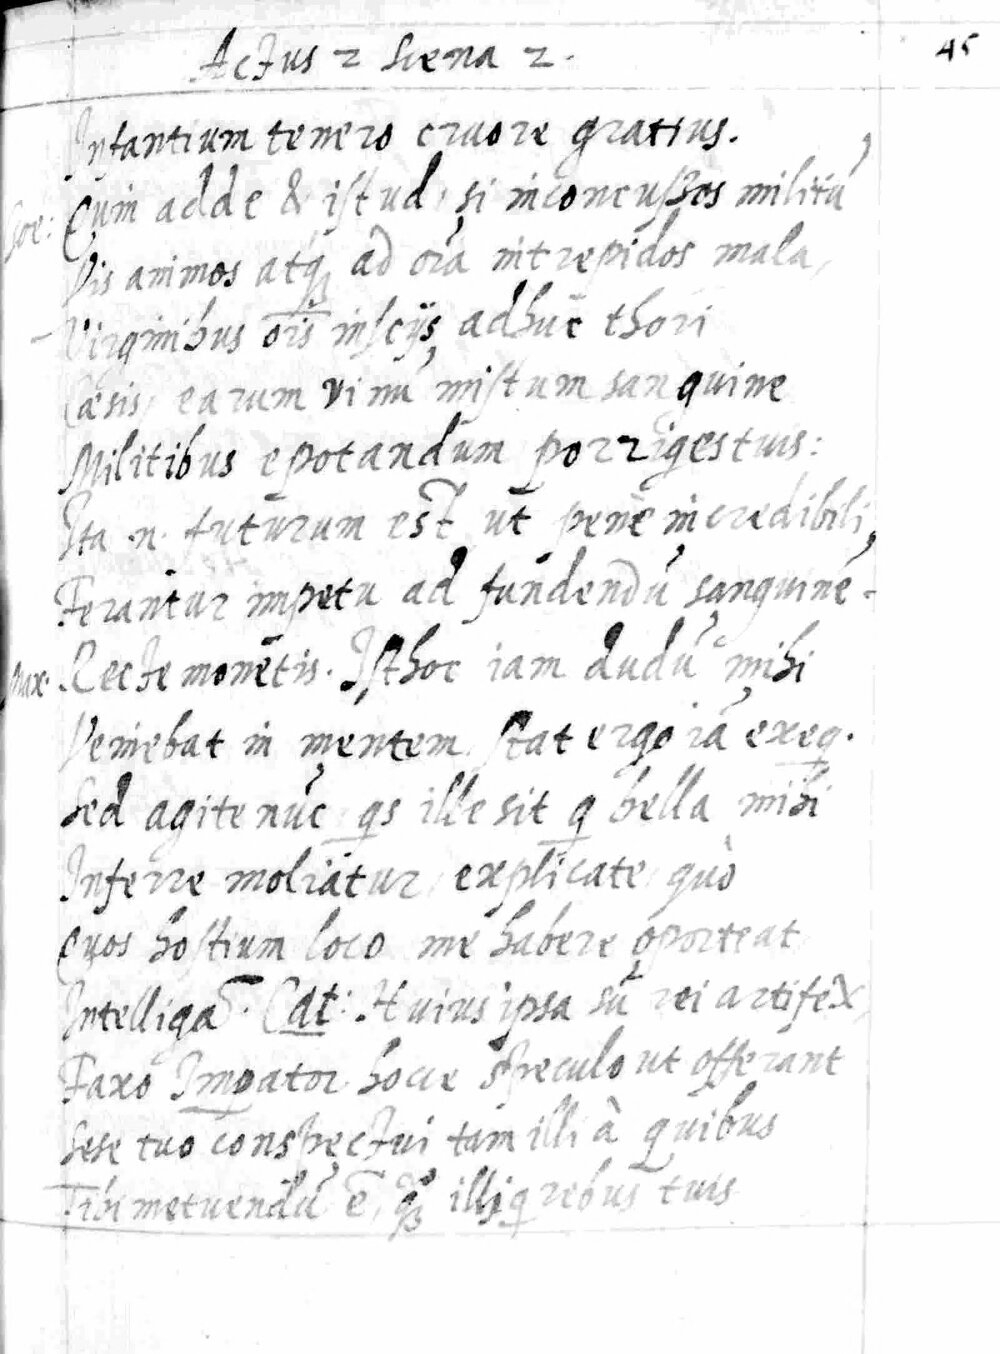 Actus 2 Scena 2.
45
Infantium tenero cruore gratius.
Soe: Quin adde & istud, si inconcussos militũ
Vis animos atq́ꝫ ad oĩa intrepidos mala,
Virginibus oris inscijs adhuc thori
Cæsis, earum vinũ mistum sanguine
Militibus epotandum porriges tuis:
Ita .n. futurum est ut penè incredibili
Ferantur impetu ad fundendũ sanguinẽ.
Max. Recte monetis. Isthoc iam dudũ mihi
Veniebat in mentem. stat ergo iã exeq.
Sed agite nũc qs ille sit q bella mihi
Inferre moliatur, explicate, quò
Quos hostium loco me habere oporteat
Intelligã. Cat: Huius ipsa sũ rei artifex,
Faxo Impator hocce speculo ut offerant
Sese tuo conspectui tam illi à quibus
Tibi metuendũ ẽ, illi q rebus tuis